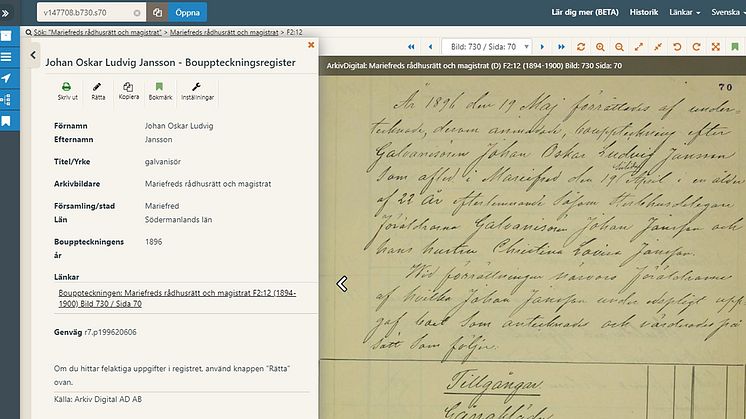 v147708.b730.s70
Öppna
Lär dig mer (BETA)
Historik
Länkar
Svenska
Sök: "Mariefreds rådhusrätt och magistrat" > Mariefreds rådhusrätt och magistrat > F2:12
Bild: 730 / Sida: 70
Johan Oskar Ludvig Jansson - Bouppteckningsregister
ArkivDigital: Mariefreds rådhusrätt och magistrat (D) F2:12 (1894-1900) Bild: 730 Sida: 70
Skriv ut
Rätta
Kopiera
Bokmärk
Inställningar
Förnamn Johan Oskar Ludvig
Efternamn Jansson
Titel/Yrke galvanisör
Arkivbildare Mariefreds rådhusrätt och magistrat
Församling/stad Mariefred
Län Södermanlands län
Bouppteckningens 1896
år
Länkar
Bouppteckningen: Mariefreds rådhusrätt och magistrat F2:12 (1894-
1900) Bild 730 / Sida 70
Genväg r7.p199620606
Om du hittar felaktiga uppgifter i registret, använd knappen "Rätta"
ovan.
Källa: Arkiv Digital AD AB
70
År 1896 den 19 Maj förrättades af under-
tecknade, bouppteckning efter
Galvanisören Johan Oskar Ludvig Jansson
som afled i Mariefred den 19 April i en ålder
af 22 år efterlemnande såsom Sterbhusdelegare
Föräldrarne Galvanisören Johan Jansson och
hans hustru Christina Lovisa Jansson.
Vid förrättningen närvoro föräldrarne
af hvilka Johan Jansson under edspligt upp-
gaf boet som antecknades och värderades på
sätt som följer:
Tillgångar
Gångkläder